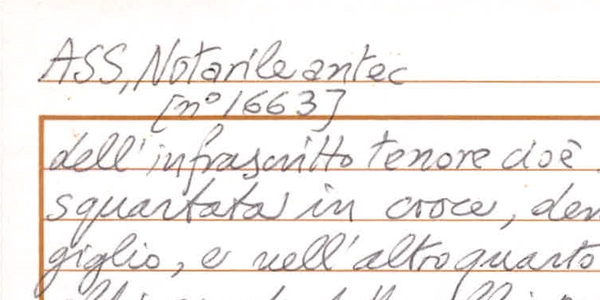 ASS, Notarile antec
[n° 1663]
dell'infrascritto tenore cioè
squartata in croce, den
giglio, e nell'altro quarto